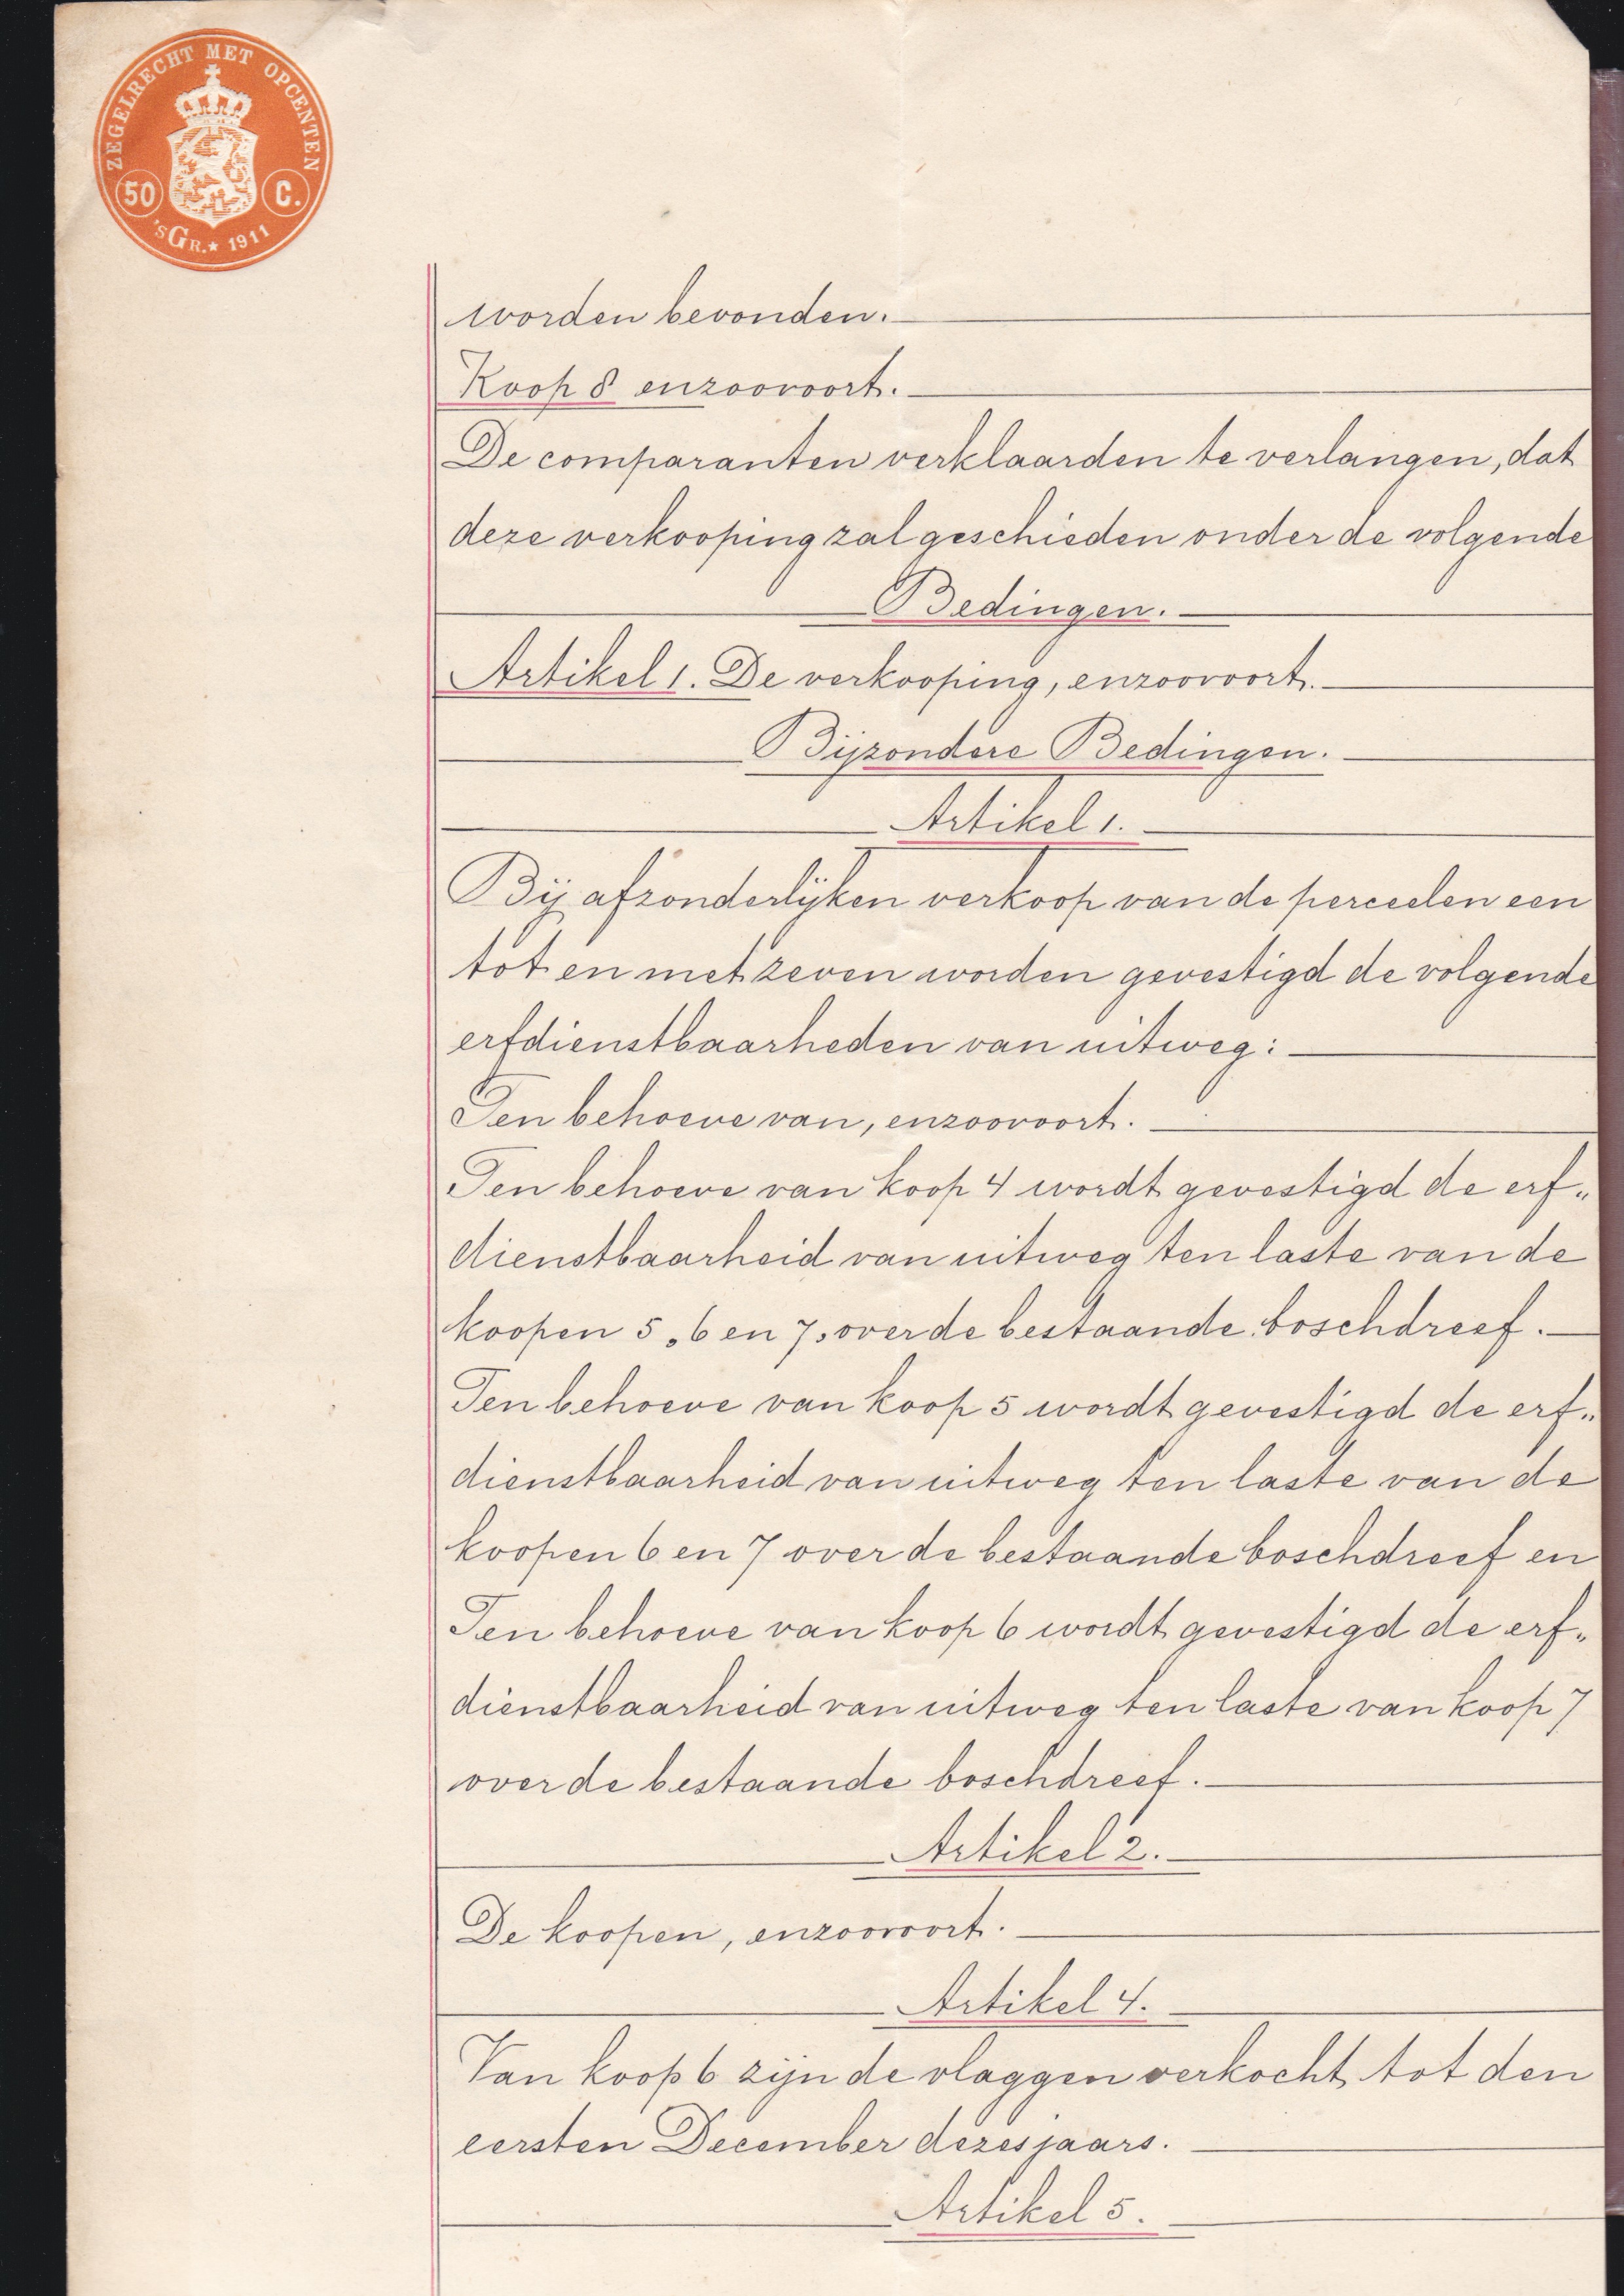 ZEGELRECHT MET OPCENTEN
50 C.
'sGr.★ 1911
worden bevonden.
Koop 8 enzoovoort.
De comparanten verklaarden te verlangen, dat
deze verkooping zal geschieden onder de volgende
Bedingen.
Artikel 1. De verkooping, enzoovoort.
Bijzondere Bedingen.
Artikel 1.
Bij afzonderlijken verkoop van de perceelen een
tot en met zeven worden gevestigd de volgende
erfdienstbaarheden van uitweg:
Ten behoeve van, enzoovoort.
Ten behoeve van koop 4 wordt gevestigd de erf„
dienstbaarheid van uitweg ten laste van de
koopen 5, 6 en 7, over de bestaande boschdreef.
Ten behoeve van koop 5 wordt gevestigd de erf„
dienstbaarheid van uitweg ten laste van de
koopen 6 en 7 over de bestaande boschdreef en
Ten behoeve van koop 6 wordt gevestigd de erf„
dienstbaarheid van uitweg ten laste van koop 7
over de bestaande boschdreef.
Artikel 2.
De koopen, enzoovoort.
Artikel 4.
Van koop 6 zijn de vlaggen verkocht tot den
eersten December dezes jaars.
Artikel 5.